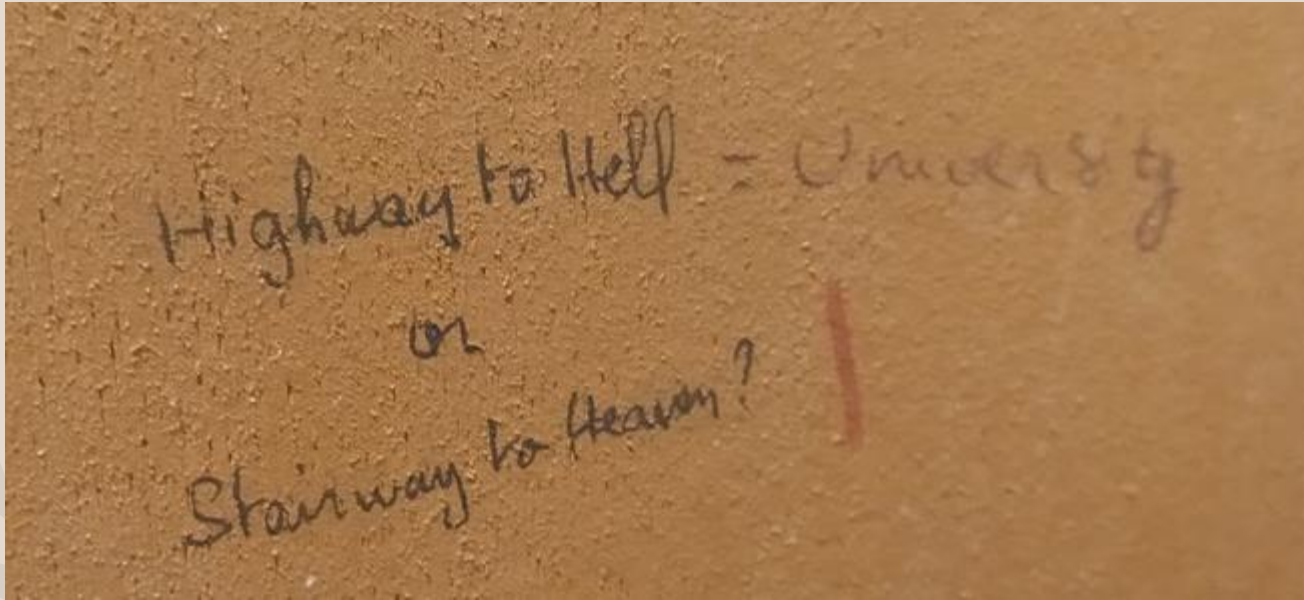 Highway to Hell = University
or
Stairway to Heaven?